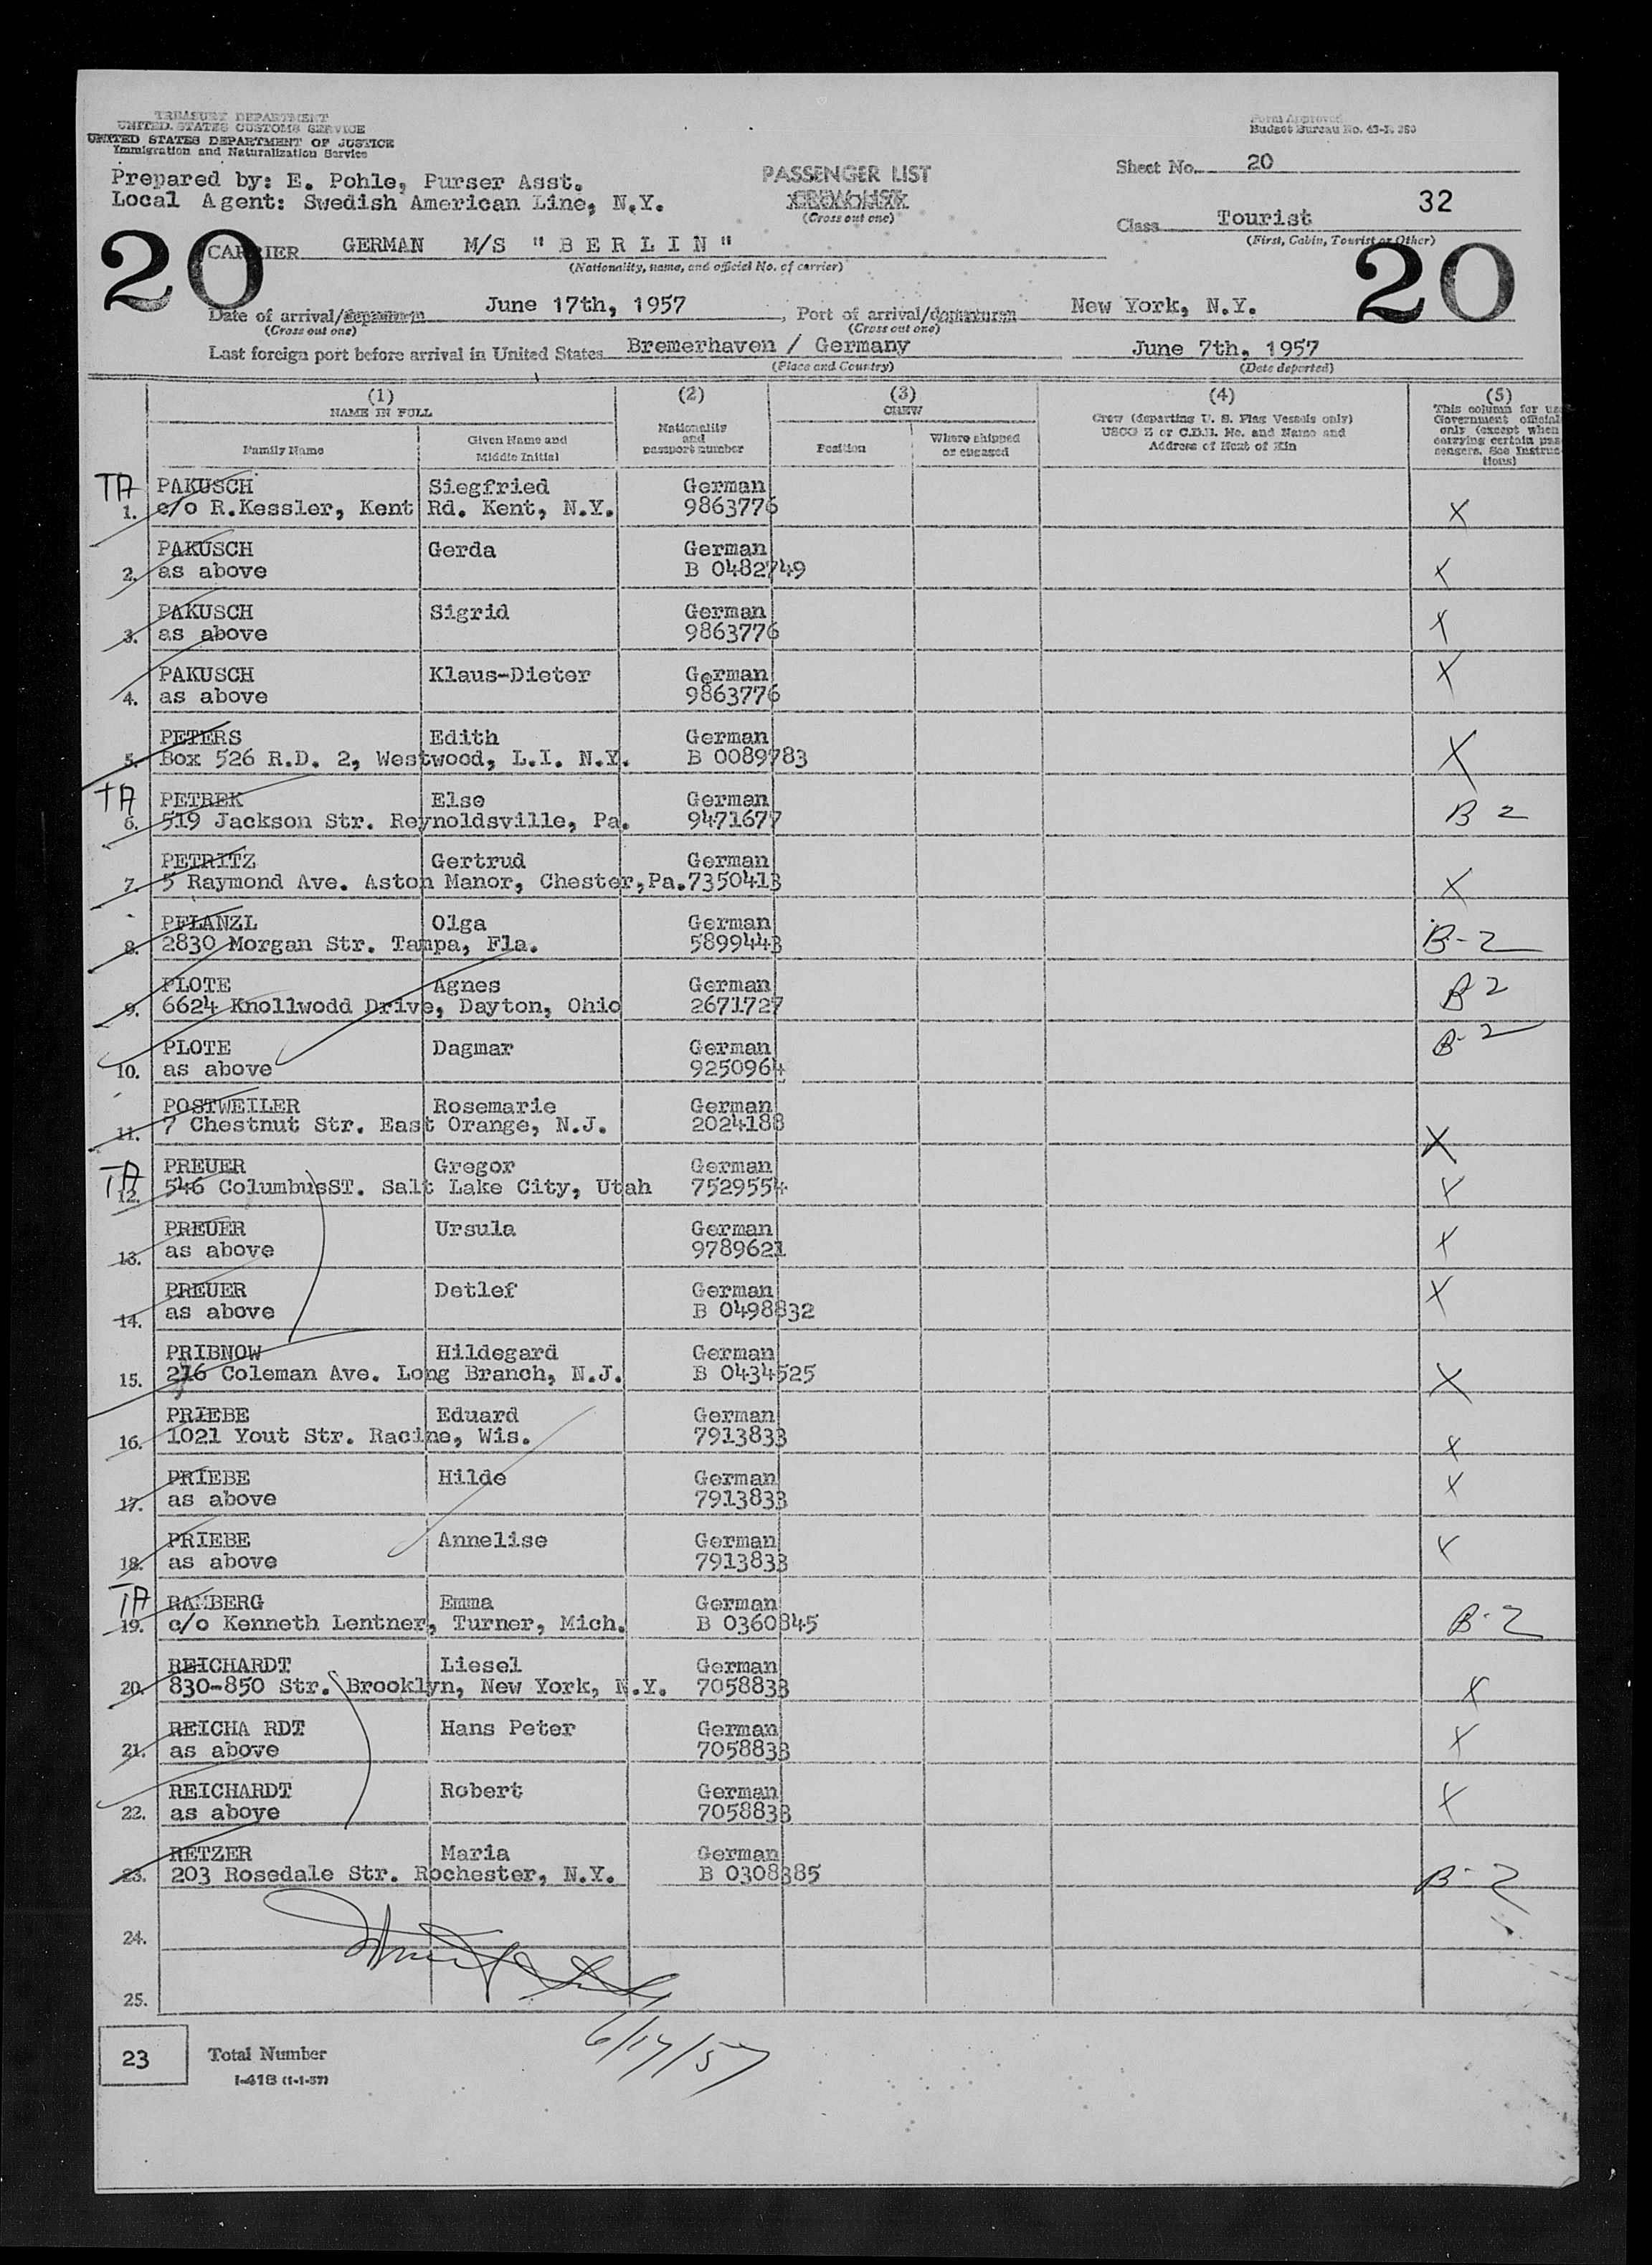 TREASURY DEPARTMENT
UNITED STATES CUSTOMS SERVICE
UNITED STATES DEPARTMENT OF JUSTICE
Immigration and Naturalization Service
Form Approved
Budget Bureau No. 43-R
Prepared by: E. Pohle, Purser Asst.
Local Agent: Swedish American Line, N.Y.
PASSENGER LIST
CREW LIST
(Cross out one)
Sheet No. 20
32
Class Tourist
(First, Cabin, Tourist or Other)
20
20
CARRIER GERMAN M/S "BERLIN"
(Nationality, name, and official No. of carrier)
Date of arrival/departure June 17th, 1957, Port of arrival/departure New York, N.Y.
(Cross out one) (Cross out one)
Last foreign port before arrival in United States Bremerhaven / Germany June 7th, 1957
(Place and Country) (Date departed)
(1) (2) (3) (4) (5)
NAME IN FULL
Family Name
Given Name and Middle Initial
Nationality and passport number
CREW
Position
Where shipped or engaged
Crew (departing U. S. Flag Vessels only)
USCG Z or C.D.B. No. and Name and
Address of Next of Kin
This column for use
Government officials
only (except when
carrying certain pas-
sengers. See Instruc-
tions)
TA PAKUSCH Siegfried German
1. c/o R.Kessler, Kent Rd. Kent, N.Y. 9863776 X
PAKUSCH Gerda German
2. as above B 0482749 X
PAKUSCH Sigrid German
3. as above 9863776 X
PAKUSCH Klaus-Dieter German X
4. as above 9863776
PETERS Edith German
5. Box 526 R.D. 2, Westwood, L.I. N.Y. B 0089783 X
TA PETREK Else German
6. 519 Jackson Str. Reynoldsville, Pa. 9471677 B 2
PETRITZ Gertrud German
7. 5 Raymond Ave. Aston Manor, Chester,Pa. 7350413 X
PFLANZL Olga German
8. 2830 Morgan Str. Tampa, Fla. 5899443 B-2
PLOTE Agnes German
9. 6624 Knollwodd Drive, Dayton, Ohio 2671727 B 2
PLOTE Dagmar German B-2
10. as above 9250964
POSTWEILER Rosemarie German
11. 7 Chestnut Str. East Orange, N.J. 2024188 X
TA PREUER Gregor German
12. 546 ColumbusST. Salt Lake City, Utah 7529554 X
PREUER Ursula German
13. as above 9789621 X
PREUER Detlef German X
14. as above B 0498832
PRIBNOW Hildegard German
15. 216 Coleman Ave. Long Branch, N.J. B 0434525 X
PRIEBE Eduard German
16. 1021 Yout Str. Racine, Wis. 7913833 X
PRIEBE Hilde German X
17. as above 7913833
PRIEBE Annelise German X
18. as above 7913833
TA RAMBERG Emma German
19. c/o Kenneth Lentner, Turner, Mich. B 0360845 B-2
REICHARDT Liesel German
20. 830-850 Str. Brooklyn, New York, N.Y. 7058833 X
REICHA RDT Hans Peter German X
21. as above 7058833
REICHARDT Robert German X
22. as above 7058833
RETZER Maria German
23. 203 Rosedale Str. Rochester, N.Y. B 0308385 B-2
24.
25.
6/17/57
23 Total Number
I-418 (1-1-57)